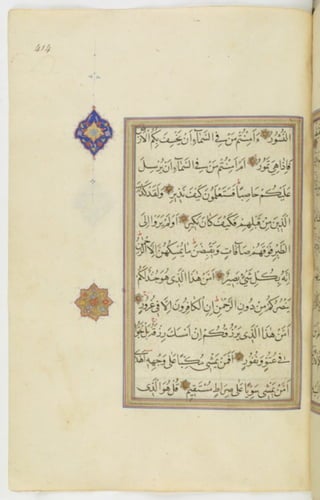 414
النُّشُورُ ءَاَمِنْتُمْ مَنْ فِي السَّمَاءِ اَنْ يَخْسِفَ بِكُمُ الْاَرْضَ
فَاِذَا هِيَ تَمُورُ اَمْ اَمِنْتُمْ مَنْ فِي السَّمَاءِ اَنْ يُرْسِلَ
عَلَيْكُمْ حَاصِبًا فَسَتَعْلَمُونَ كَيْفَ نَذِيرِ وَلَقَدْ كَذَّبَ
الَّذِينَ مِنْ قَبْلِهِمْ فَكَيْفَ كَانَ نَكِيرِ اَوَلَمْ يَرَوْا اِلَى
الطَّيْرِ فَوْقَهُمْ صَافَّاتٍ وَيَقْبِضْنَ مَا يُمْسِكُهُنَّ اِلَّا الرَّحْمٰنُ
اِنَّهُ بِكُلِّ شَيْءٍ بَصِيرٌ اَمَّنْ هٰذَا الَّذِي هُوَ جُنْدٌ لَكُمْ
يَنْصُرُكُمْ مِنْ دُونِ الرَّحْمٰنِ اِنِ الْكَافِرُونَ اِلَّا فِي غُرُورٍ
اَمَّنْ هٰذَا الَّذِي يَرْزُقُكُمْ اِنْ اَمْسَكَ رِزْقَهُ بَلْ لَجُّوا
فِي عُتُوٍّ وَنُفُورٍ اَفَمَنْ يَمْشِي مُكِبًّا عَلَى وَجْهِهِ اَهْدَى
اَمَّنْ يَمْشِي سَوِيًّا عَلَى صِرَاطٍ مُسْتَقِيمٍ قُلْ هُوَ الَّذِي